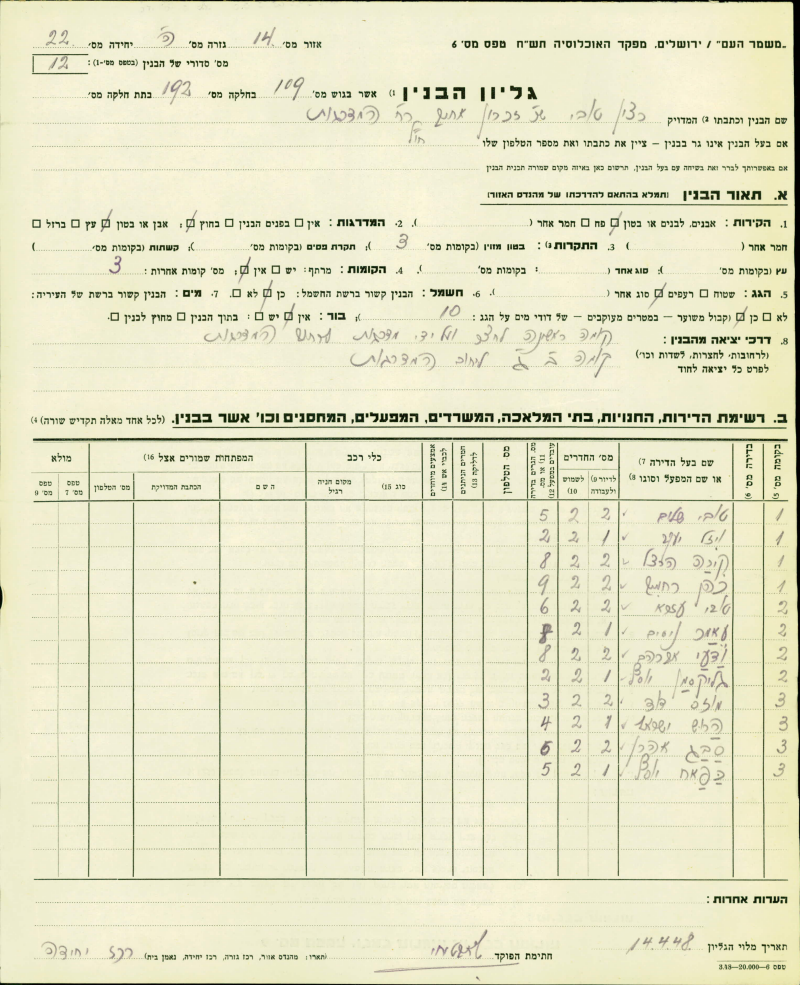 „משמר העם" / ירושלים. מפקד האוכלוסיה תש"ח טפס מס' 6 אזור מס' 14 גזרה מס' ה' יחידה מס' 22
מס' סדורי של הבנין (בטפס מס'-1): 12
גליון הבנין (1 אשר בגוש מס' 109 בחלקה מס' 192 בתת חלקה מס'
שם הבנין וכתבתו (2 המדויק טובי זכרון רח' המדרגות
אם בעל הבנין אינו גר בבנין – ציין את כתבתו ואת מספר הטלפון שלו
אם באפשרותך לברר זאת בשיחה עם בעל הבנין, תרשום כאן באיזה מקום שמורה תבנית הבנין
א. תאור הבנין (תמלא בהתאם להדרכתו של מהנדס האזור)
1. הקירות: אבנים, לבנים או בטון ☑ פח ☐ חמר אחר ( ). 2. המדרגות: אין ☐ בפנים הבנין ☐ בחוץ ☑: אבן או בטון ☑ עץ ☐ ברזל ☐
חמר אחר ( ) 3. התקרות (3: בטון מזוין (בקומות מס' 3 ); תקרת פסים (בקומות מס' ); קשתות (בקומות מס' )
עץ (בקומות מס' ); סוג אחד ( ): בקומות מס' ( ). 4. הקומות: מרתף: יש ☐ אין ☑; מס' קומות אחרות: 3
5. הגג: שטוח ☐ רעפים ☑ סוג אחר ( ). 6. חשמל: הבנין קשור ברשת החשמל: כן ☑ לא ☐. 7. מים: הבנין קשור ברשת של העיריה:
לא ☐ כן ☑ (קבול משוער – במטרים מעוקבים – של דודי מים על הגג: 10 ); בור: אין ☑ יש ☐: בתוך הבנין ☐ מחוץ לבנין ☐.
8. דרכי יציאה מהבנין: קומה ראשונה לחצר ועל ידי מדרגות לרחוב המדרגות
(לרחובות, לחצרות, לשדות וכו') קומה ב ג לרחוב המדרגות
לפרט כל יציאה לחוד
ב. רשימת הדירות, החנויות, בתי המלאכה, המשרדים, המפעלים, המחסנים וכו' אשר בבנין. (לכל אחד מאלה תקדיש שורה) (4
בקומה מס' (5 בדירה מס' (6 שם בעל הדירה (7 או שם המפעל וסוגו (8 מס' החדרים לדיור (9 ולעבודה לשמוש (10 מס' הגרים בדירה (11 או מס' עובדים במפעל (12 מס' הטלפון חמרים הניתנים לדליקה (13 אמצעים מיוחדים לכבוי אש (14 כלי רכב סוג (15 מקום חניה רגיל המפתחות שמורים אצל (16 השם הכתבת המדויקת מס' הטלפון מולא טפס מס' 7 טפס מס' 9
1 טובי שלום 2 2 5
1 יעקב 1 2 2
1 הרצל 2 2 8
1 כהן רחמים 2 2 9
2 טובי עזרא 2 2 6
2 נסים 1 2 8
2 אברהם 2 2 8
2 גליקסמן יוסף 1 2 2
3 מוזס דוד 2 2 3
3 הרוש ישראל 1 2 4
3 סבג אהרן 2 2 6
3 יוסף 1 2 5
הערות אחרות:
תאריך מלוי הגליון 14.4.48 חתימת הפוקד (תארו: מהנדס אזור, רכז גזרה, רכז יחידה, נאמן בית) רכז יחידה
טפס 6–20.000–3.48